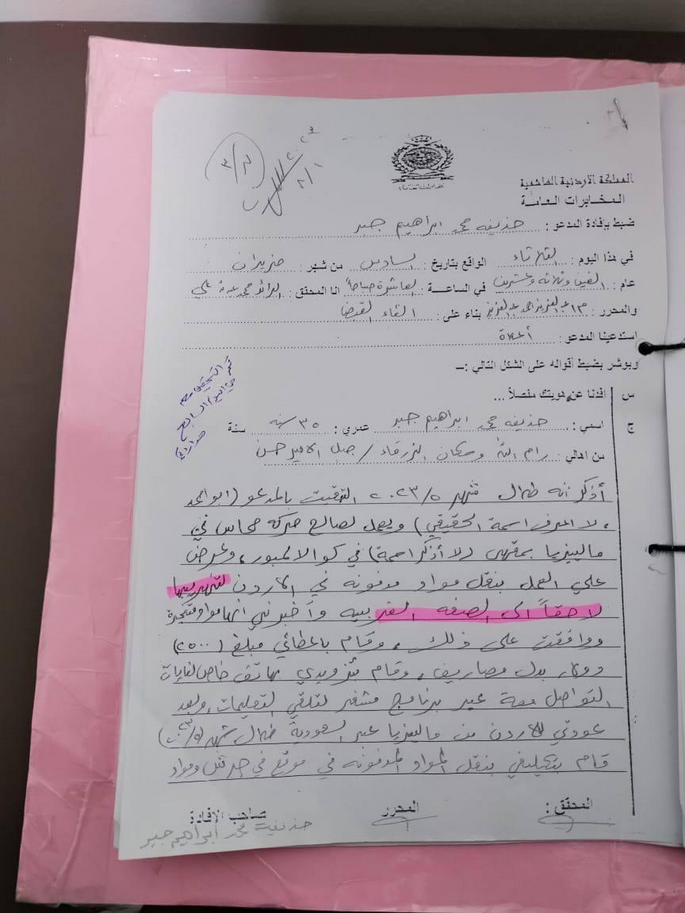 المملكة الأردنية الهاشمية
المخابرات العامة
ضبط بإفادة المدعو : حذيفه محمد ابراهيم جبر
في هذا اليوم : الثلاثاء الواقع بتاريخ : السادس من شهر : حزيران
عام : الفين وثلاثه وعشرين في الساعة : العاشرة صباحاً انا المحقق :
والمحرر : بناء على : القاء القبض
استدعينا المدعو : أعلاه
ويوشر بضبط أقواله على الشكل التالي :ـ
س افدنا عن هويتك مفصلاً ...
ج اسمي : حذيفه محمد ابراهيم جبر عمري : ٣٥ سنه سنة
من اهالي : رام الله وسكان الزرقاء / جبل الامير حسن
أذكر أنه خلال شهر ٢٠٢٣/٥ التقيت بالمدعو (ابو
، لا اعرف اسمه الحقيقي) ويعمل لصالح حركة حماس في
ماليزيا بمقهى (لا أذكر اسمه) في كوالالمبور، وعرض
علي العمل بنقل مواد مدفونه في الاردن لتهريبها
لاحقاً الى الضفه الغربيه وأخبرني انها مواد متفجرة
ووافقت على ذلك، وقام باعطائي مبلغ (٢٥٠٠)
بدل مصاريف، وقام بتزويدي بهاتف خاص لغايات
التواصل معه عبر برنامج مشفر لتلقي التعليمات، وبعد
عودتي للاردن من ماليزيا عبر السعودية خلال شهر
قام بتكليفي بنقل المواد المدفونه في موقع في
المحقق : المحرر صاحب الإفادة
حذيفه محمد ابراهيم جبر